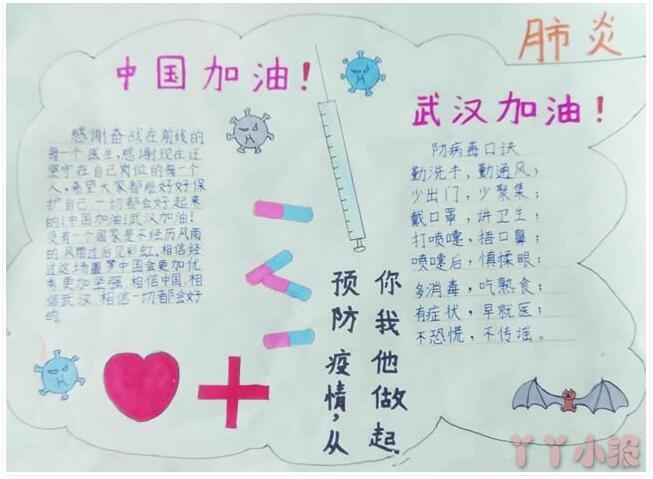 肺炎
中国加油!
感谢奋战在前线的
每一个医生,感谢现在还
坚守在自己岗位的每一个
人,希望大家都能好好保
护自己,一切都会好起来
的!中国加油!武汉加油!
没有一个国家是不经历风雨
的,风雨过后见彩虹,相信经
过这场噩梦中国会更加优
秀更加坚强,相信中国,相
信武汉,相信一切都会好
的。
武汉加油!
防病毒口诀
勤洗手,勤通风;
少出门,少聚集;
戴口罩,讲卫生;
打喷嚏,捂口鼻;
喷嚏后,慎揉眼;
多消毒,吃熟食;
有症状,早就医;
不恐慌,不传谣。
预防疫情,从
你我他做起.
丫丫小报